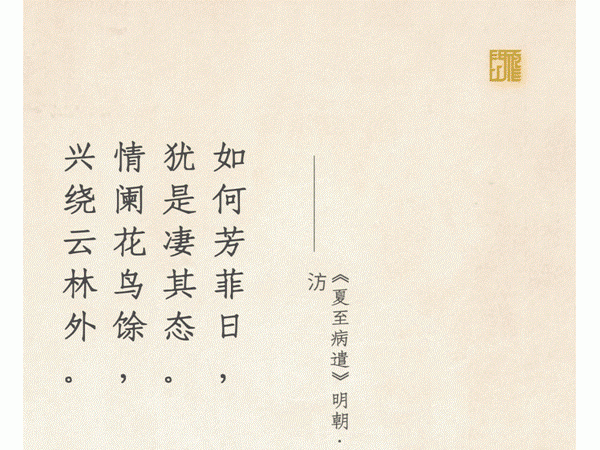 《夏至病遣》明朝·
汸
如何芳菲日，
犹是凄其态。
情阑花鸟馀，
兴绕云林外。